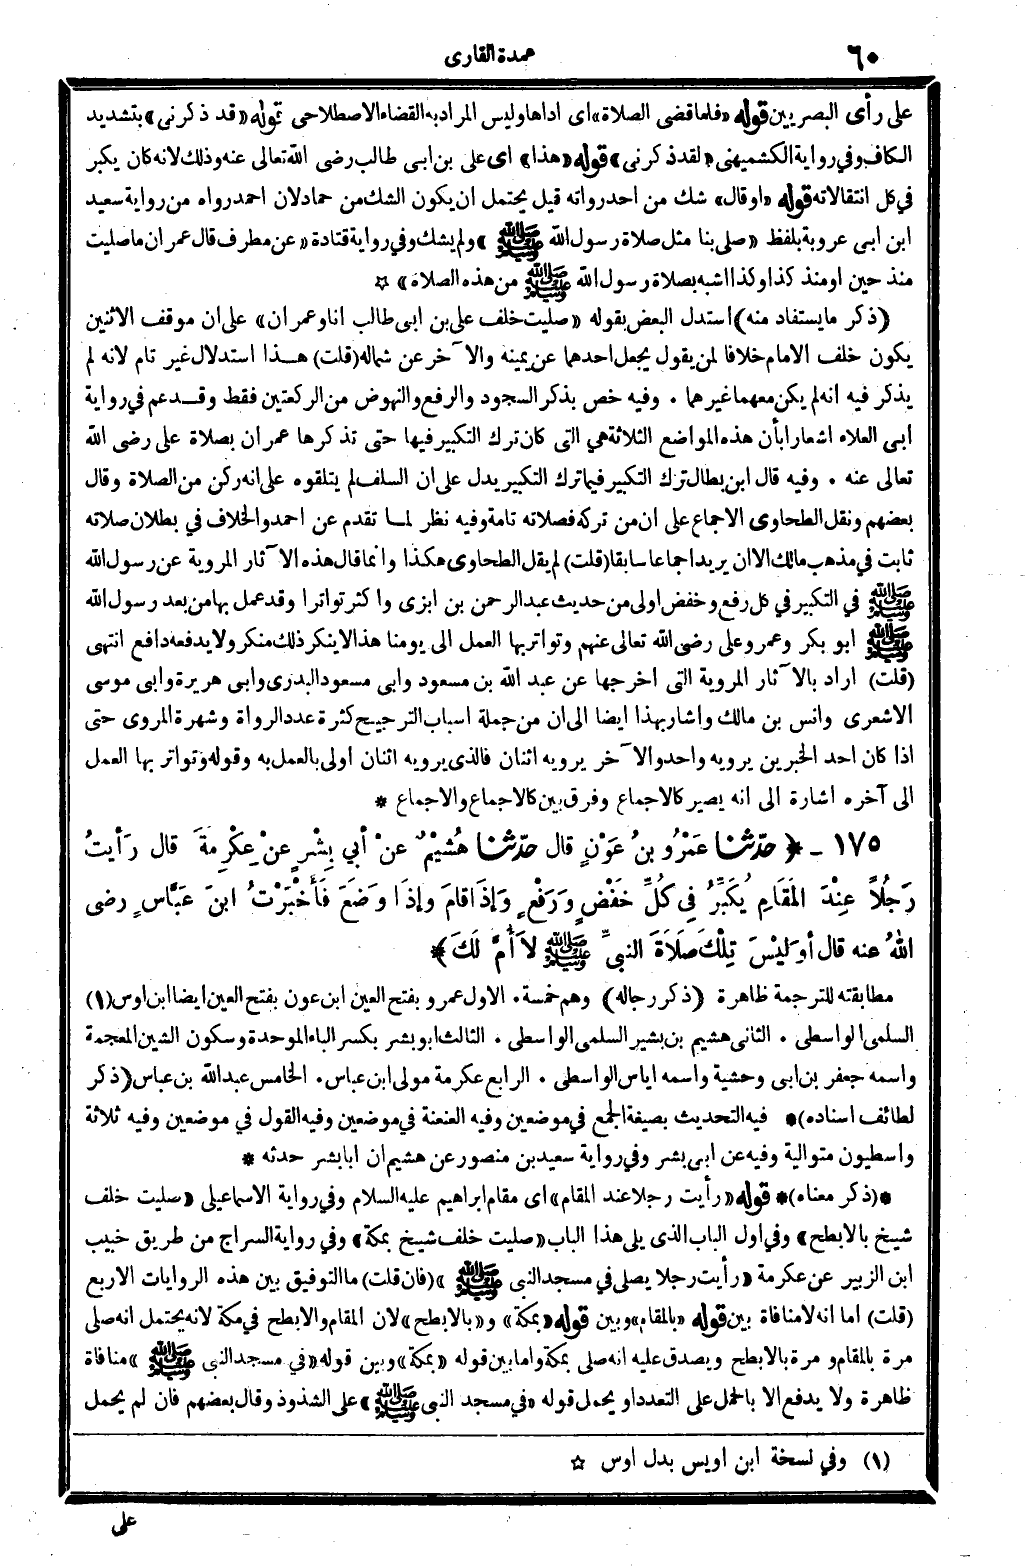 ٦٠ عمدة القارى
على رأى البصريين قوله «فلما قضى الصلاة» اى اداها وليس المراد به القضاء الاصطلاحى قوله «قد ذكرنى» بتشديد
الكاف وفي رواية الكشميهنى «لقد ذكرنى» قوله «هذا» اى على بن ابى طالب رضى الله تعالى عنه وذلك لانه كان يكبر
في كل انتقالاته قوله «اوقال» شك من احد رواته قيل يحتمل ان يكون الشك من حماد لان احمد رواه من رواية سعيد
ابن ابى عروبة بلفظ «صلى بنا مثل صلاة رسول الله ﷺ» ولم يشك وفي رواية قتادة «عن مطرف قال عمران ما صليت
منذ حين او منذ كذا وكذا اشبه بصلاة رسول الله ﷺ من هذه الصلاة» ☆
(ذكر ما يستفاد منه) استدل البعض بقوله «صليت خلف على بن ابى طالب انا وعمران» على ان موقف الاثنين
يكون خلف الامام خلافا لمن يقول يجعل احدهما عن يمينه والآخر عن شماله (قلت) هـذا استدلال غير تام لانه لم
يذكر فيه انه لم يكن معهما غيرهما ۰ وفيه خص بذكر السجود والرفع والنهوض من الركعتين فقط وقـد عم في رواية
ابى العلاء اشعارا بأن هذه المواضع الثلاثة هي التى كان ترك التكبير فيها حتى تذكرها عمران بصلاة على رضى الله
تعالى عنه ۰ وفيه قال ابن بطال ترك التكبير فيما ترك التكبير يدل على ان السلف لم يتلقوه على انه ركن من الصلاة وقال
بعضهم ونقل الطحاوى الاجماع على ان من تركه فصلاته تامة وفيه نظر لمـا تقدم عن احمد والخلاف في بطلان صلاته
ثابت في مذهب مالك الا ان يريد اجماعا سابقا (قلت) لم يقل الطحاوى هكذا وانما قال هذه الآثار المروية عن رسول الله
ﷺ في التكبير في كل رفع وخفض اولى من حديث عبد الرحمن بن ابزى واكثر تواترا وقد عمل بها من بعد رسول الله
ﷺ ابو بكر وعمر وعلى رضى الله تعالى عنهم وتواتر بها العمل الى يومنا هذا لا ينكر ذلك منكر ولا يدفعه دافع انتهى
(قلت) اراد بالآثار المروية التى اخرجها عن عبد الله بن مسعود وابى مسعود البدرى وابى هريرة وابى موسى
الاشعرى وانس بن مالك واشار بهذا ايضا الى ان من جملة اسباب الترجيح كثرة عدد الرواة وشهرة المروى حتى
اذا كان احد الخبرين يرويه واحد والآخر يرويه اثنان فالذى يرويه اثنان اولى بالعمل به وقوله وتواتر بها العمل
الى آخره اشارة الى انه يصير كالاجماع وفرق بين كالاجماع والاجماع *
١٧٥ ـ ﴿ حدّثنا عَمْرُو بنُ عَوْنٍ قال حدّثنا هُشَيْمٌ عنْ أبي بِشْرٍ عنْ عِكْرِمَةَ قال رَأيتُ
رَجُلاً عِنْدَ المَقَامِ يُكَبِّرُ في كُلِّ خَفْضٍ وَرَفْعٍ وَإذَا قامَ وإذَا وَضَعَ فَأَخْبَرْتُ ابنَ عَبَّاسٍ رضى
اللهُ عنه قال أوَلَيْسَ تِلْكَ صَلاَةَ النبيِّ ﷺ لاَ أُمَّ لَكَ ﴾
مطابقته للترجمة ظاهرة (ذكر رجاله) وهم خمسة ۰ الاول عمرو بفتح العين ابن عون بفتح العين ايضا ابن اوس (١)
السلمى الواسطى ۰ الثانى هشيم بن بشير السلمى الواسطى ۰ الثالث ابو بشر بكسر الباء الموحدة وسكون الشين المعجمة
واسمه جعفر بن ابى وحشية واسمه اياس الواسطى ۰ الرابع عكرمة مولى ابن عباس ۰ الخامس عبد الله بن عباس (ذكر
لطائف اسناده)* فيه التحديث بصيغة الجمع في موضعين وفيه العنعنة في موضعين وفيه القول في موضعين وفيه ثلاثة
واسطيون متوالية وفيه عن ابى بشر وفي رواية سعيد بن منصور عن هشيم ان ابا بشر حدثه *
*(ذكر معناه)* قوله «رأيت رجلا عند المقام» اى مقام ابراهيم عليه السلام وفي رواية الاسماعيلى «صليت خلف
شيخ بالابطح» وفي اول الباب الذى يلى هذا الباب «صليت خلف شيخ بمكة» وفي رواية السراج من طريق خبيب
ابن الزبير عن عكرمة «رأيت رجلا يصلى في مسجد النبى ﷺ» (فان قلت) ما التوفيق بين هذه الروايات الاربع
(قلت) اما انه لا منافاة بين قوله «بالمقام» وبين قوله «بمكة» و«بالابطح» لان المقام والابطح في مكة لانه يحتمل انه صلى
مرة بالمقام ومرة بالابطح ويصدق عليه انه صلى بمكة واما بين قوله «بمكة» وبين قوله «في مسجد النبى ﷺ» منافاة
ظاهرة ولا يدفع الا بالحمل على التعدد او يحمل قوله «في مسجد النبى ﷺ» على الشذوذ وقال بعضهم فان لم يحمل
(١) وفي نسخة ابن اويس بدل اوس ☆
على